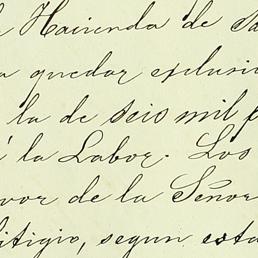 Hacienda de Sa
a quedar esclusi
la de seis mil p
á la Labor. Los
vor de la Señor
itigio, segun esta